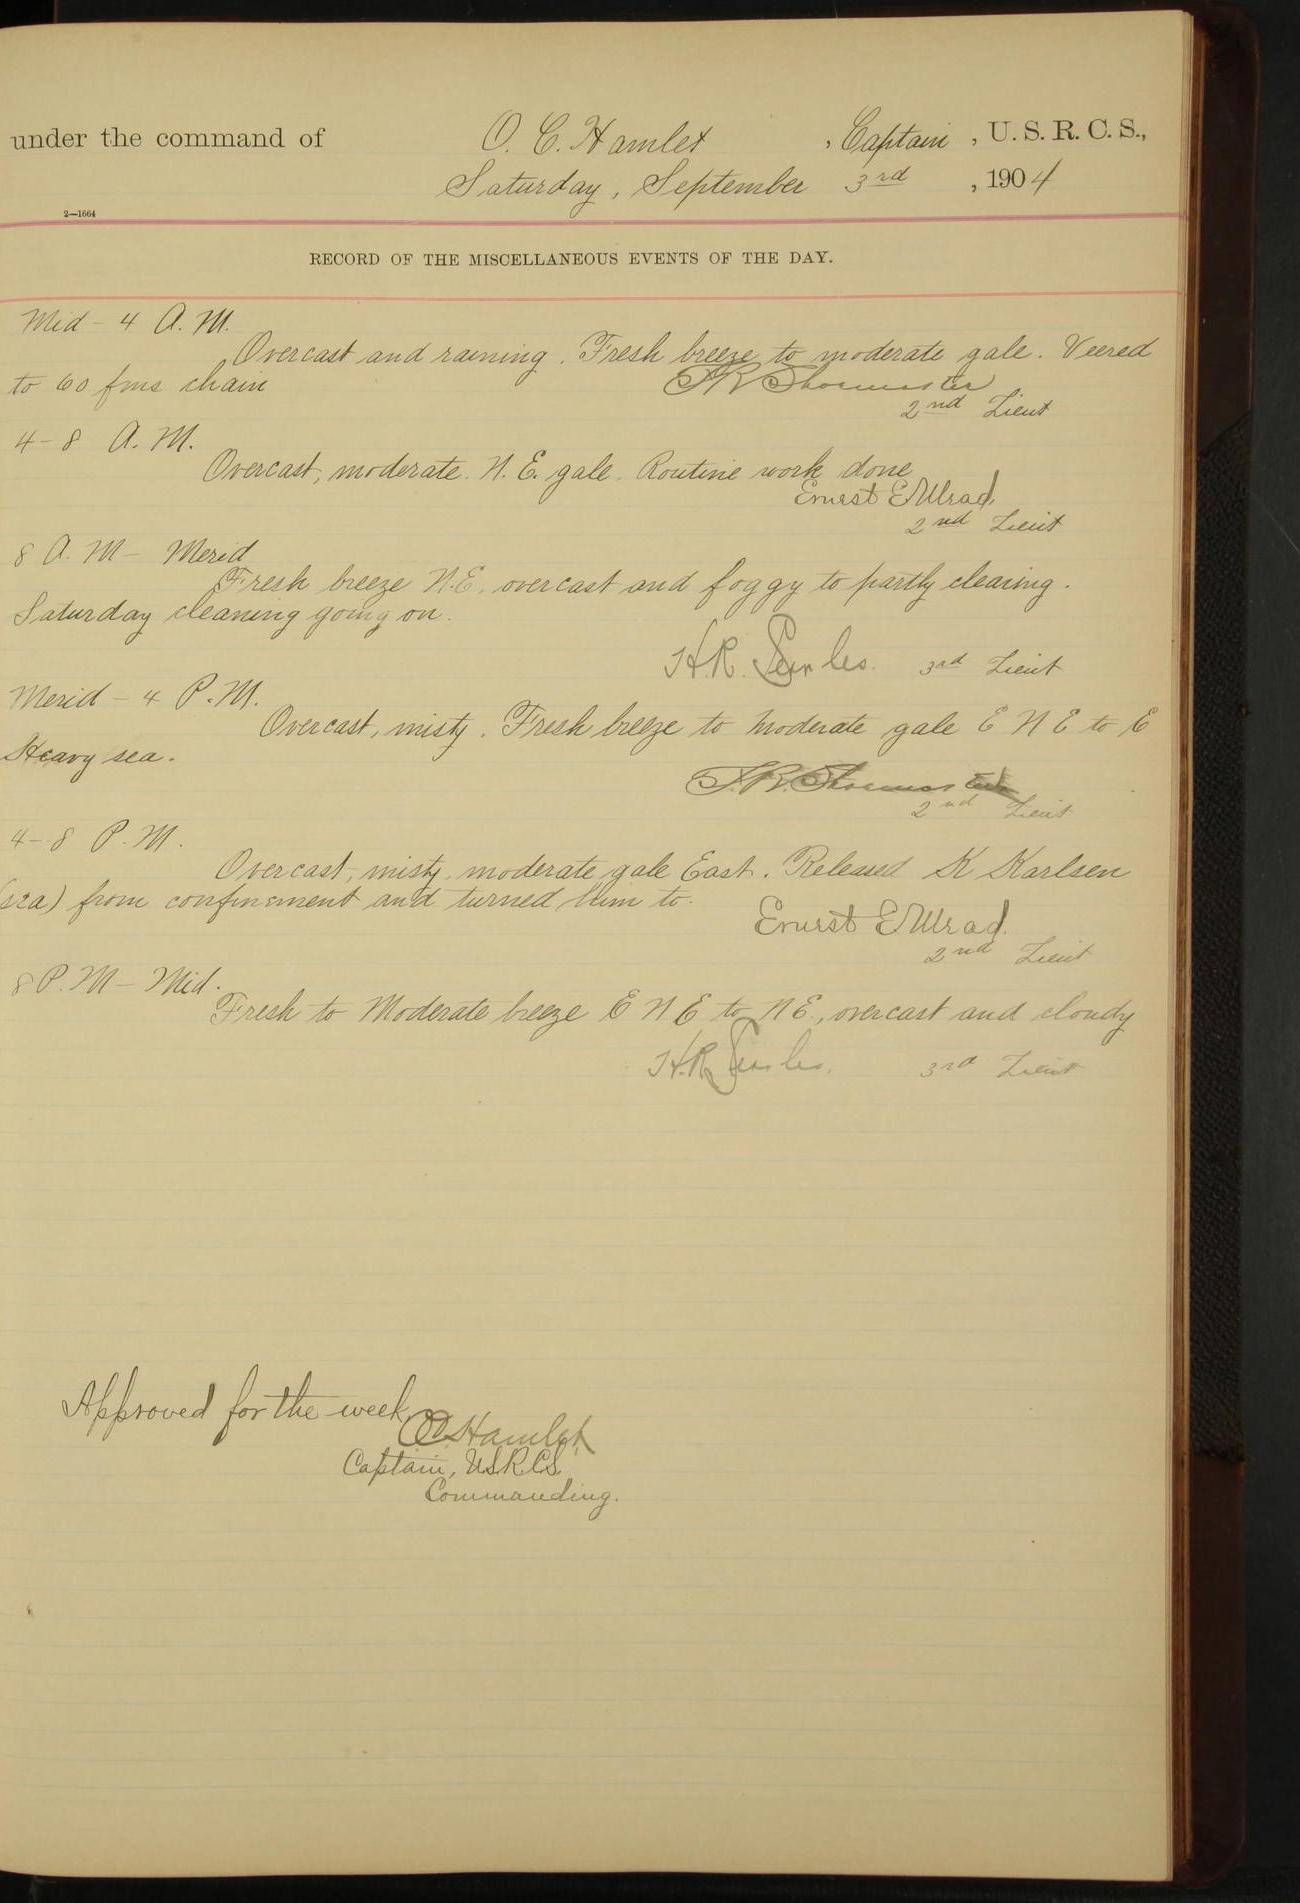 under the command of O. C. Hamlet , Captain , U. S. R. C. S.,
Saturday, September 3rd , 1904
2—1664
RECORD OF THE MISCELLANEOUS EVENTS OF THE DAY.
Mid - 4 A. M.
Overcast and raining. Fresh breeze to moderate gale. Veered
to 60 fms chain
2nd Lieut
4 - 8 A. M.
Overcast, moderate N. E. gale. Routine work done
Ernest E Mead
2nd Lieut
8 A. M - Merid
Fresh breeze N.E. overcast and foggy to partly clearing.
Saturday cleaning going on.
H.R. Searles. 3rd Lieut
Merid - 4 P. M.
Overcast, misty. Fresh breeze to moderate gale E N E to E
Heavy sea.
2nd Lieut
4 - 8 P. M.
Overcast, misty, moderate gale East. Released K Karlsen
from confinement and turned him to.
Ernest E Mead.
2nd Lieut
8 P. M - Mid.
Fresh to Moderate breeze E N E to N E, overcast and cloudy
H.R. Searles. 3rd Lieut
Approved for the week,
O.C. Hamlet
Captain, USRCS
Commanding.